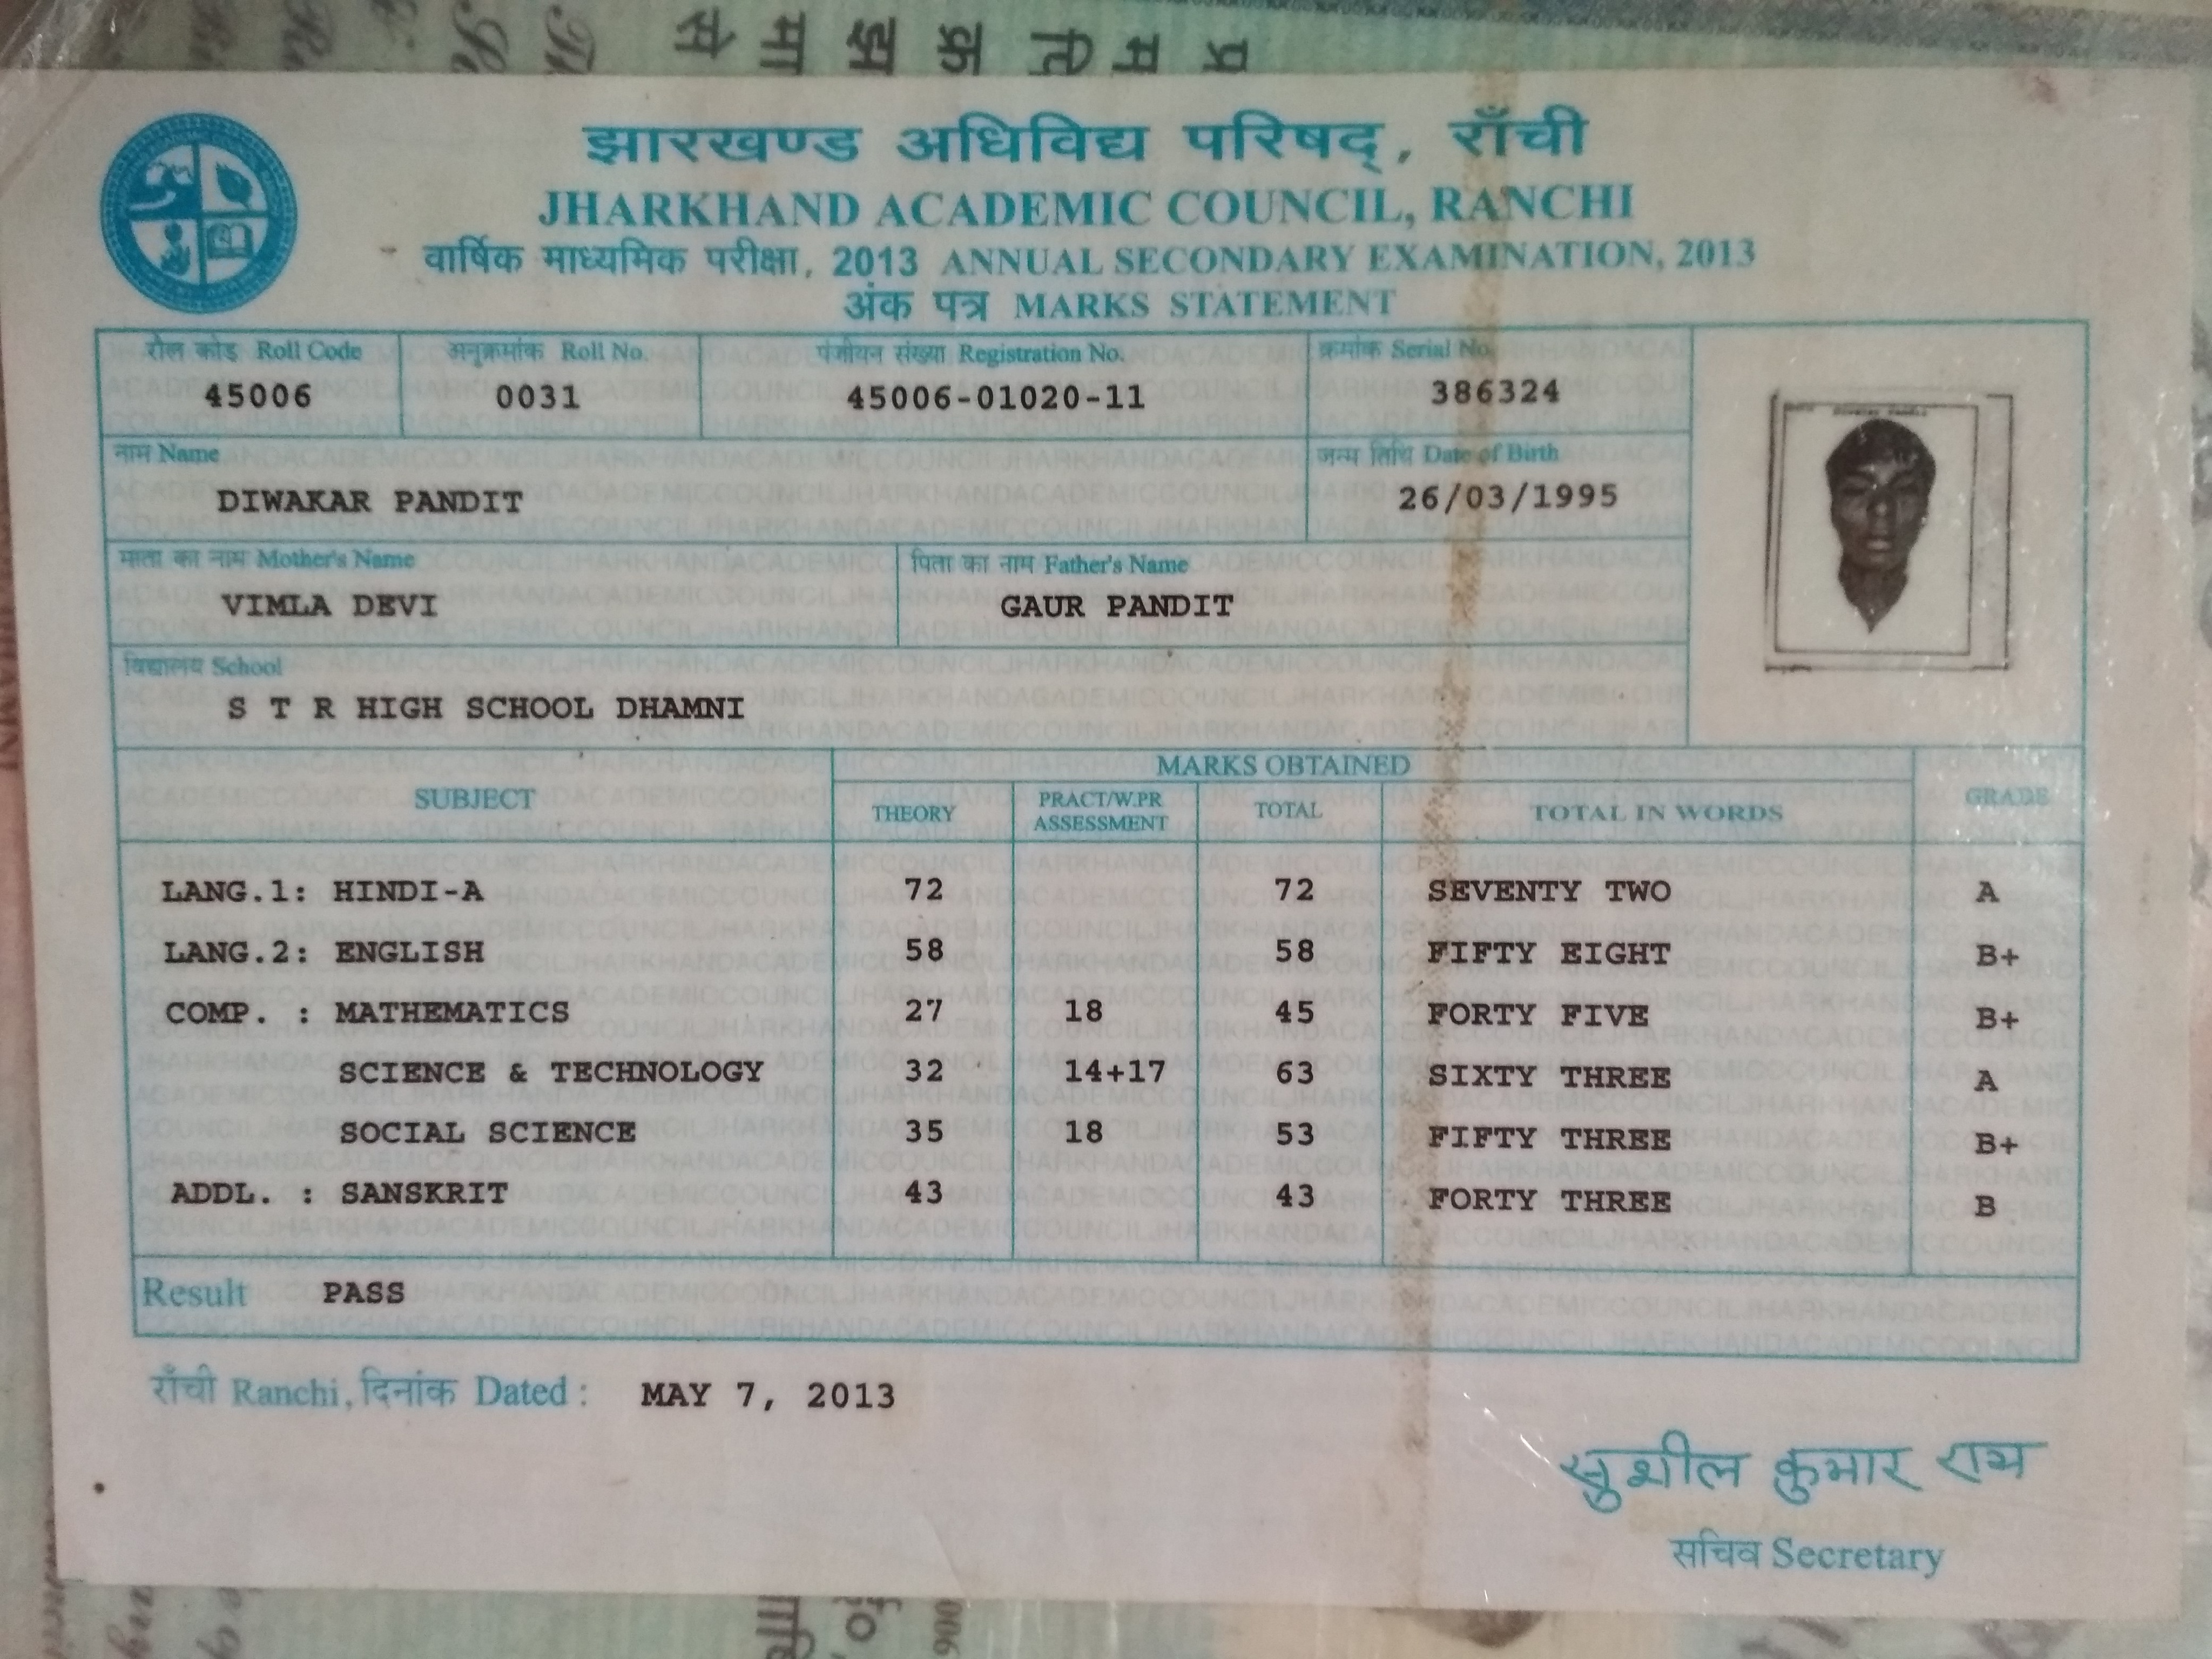 से मा झ क ति म प्र
झारखण्ड अधिविद्य परिषद्, राँची
JHARKHAND ACADEMIC COUNCIL, RANCHI
वार्षिक माध्यमिक परीक्षा, 2013 ANNUAL SECONDARY EXAMINATION, 2013
अंक पत्र MARKS STATEMENT
रोल कोड Roll Code अनुक्रमांक Roll No. पंजीयन संख्या Registration No. क्रमांक Serial No.
45006 0031 45006-01020-11 386324
नाम Name जन्म तिथि Date of Birth
DIWAKAR PANDIT 26/03/1995
माता का नाम Mother's Name पिता का नाम Father's Name
VIMLA DEVI GAUR PANDIT
विद्यालय School
S T R HIGH SCHOOL DHAMNI
MARKS OBTAINED
SUBJECT THEORY PRACT/W.PR ASSESSMENT TOTAL TOTAL IN WORDS GRADE
LANG.1: HINDI-A 72 72 SEVENTY TWO A
LANG.2: ENGLISH 58 58 FIFTY EIGHT B+
COMP. : MATHEMATICS 27 18 45 FORTY FIVE B+
SCIENCE & TECHNOLOGY 32 14+17 63 SIXTY THREE A
SOCIAL SCIENCE 35 18 53 FIFTY THREE B+
ADDL. : SANSKRIT 43 43 FORTY THREE B
Result PASS
राँची Ranchi, दिनांक Dated : MAY 7, 2013
सुशील कुमार राय
सचिव Secretary